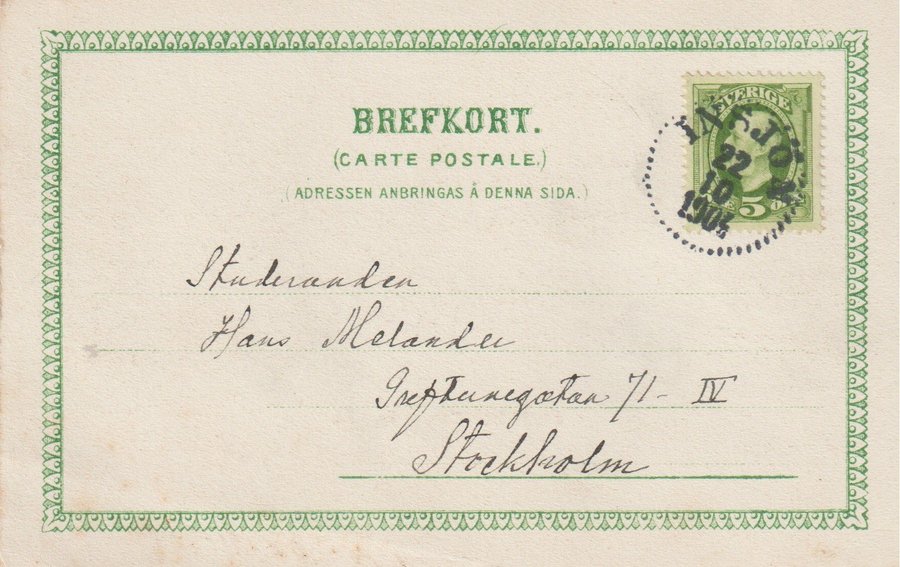 BREFKORT.
(CARTE POSTALE.)
(ADRESSEN ANBRINGAS Å DENNA SIDA.)
SVERIGE
5
INSJÖN
22
10
Studeranden
Hans Melander
Grefturegatan 71 - IV
Stockholm